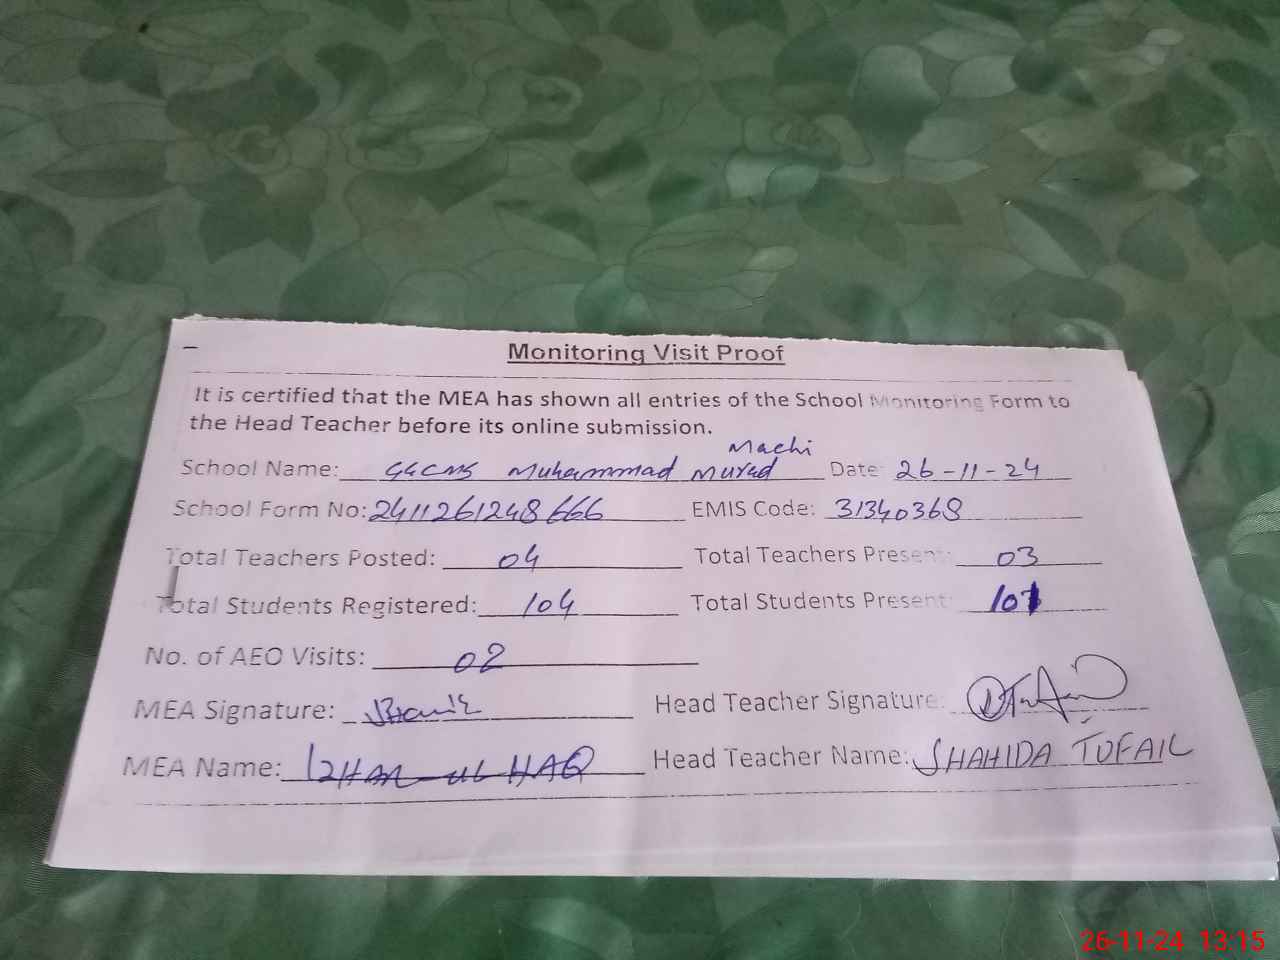 Monitoring Visit Proof
It is certified that the MEA has shown all entries of the School Monitoring Form to
the Head Teacher before its online submission.
School Name: GGCMS Muhammad Murad Machi Date: 26-11-24
School Form No: 2411261248666 EMIS Code: 31340368
Total Teachers Posted: 04 Total Teachers Present: 03
Total Students Registered: 104 Total Students Present: 101
No. of AEO Visits: 02
MEA Signature: Head Teacher Signature:
MEA Name: IZHAR ul HAQ Head Teacher Name: SHAHIDA TUFAIL
26-11-24 13:15